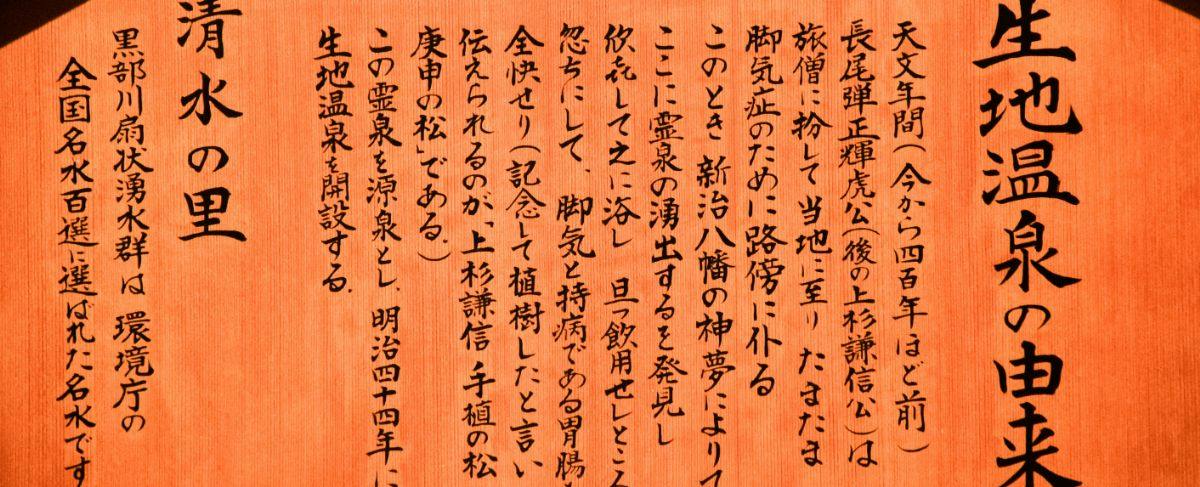 生地温泉の由来
天文年間(今から四百年ほど前)
長尾弾正輝虎公(後の上杉謙信公)は
旅僧に扮して当地に至り たまたま
脚気症のために路傍に仆る
このとき 新治八幡の神夢によりて
ここに霊泉の湧出するを発見し
欣㐂して之に浴し 旦つ飲用せしところ
忽ちにして、脚気と持病である胃腸
全快せり(記念して植樹したと言い
伝えられるのが、「上杉謙信 手植の松
庚申の松」である。)
この霊泉を源泉とし、明治四十四年に
生地温泉を開設する。
清水の里
黒部川扇状湧水群は 環境庁の
全国名水百選に選ばれた名水です